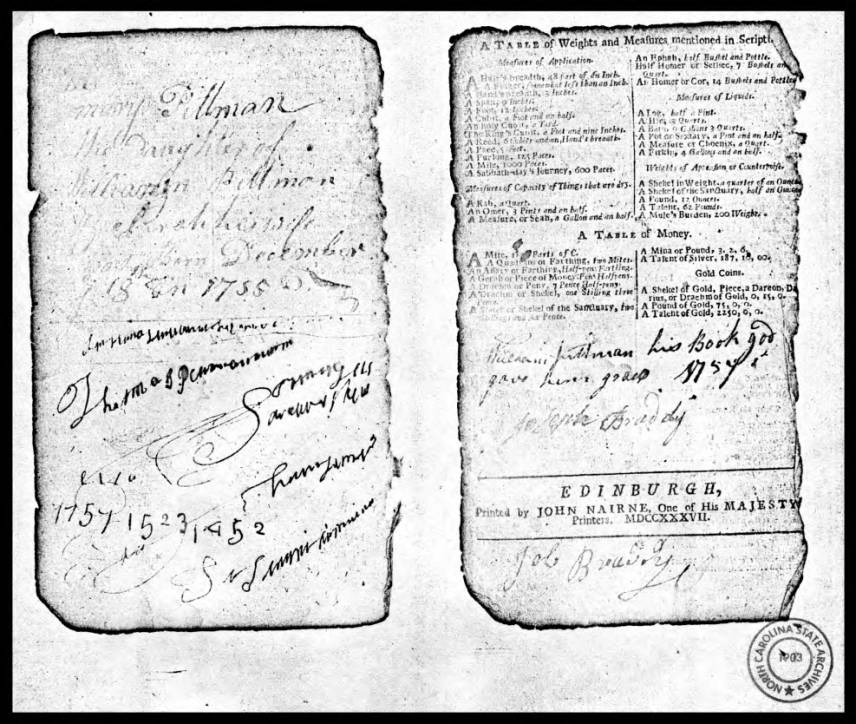 Pittman
the Daughter of
William Pittman
his wife
Born December
18th In 1755
Thomas
1757 1523 1452
A TABLE of Weights and Measures mentioned in Script.
Measures of Application.
A Hair's breadth, 48 part of an Inch.
A Finger, somewhat less than an Inch.
A Hand's breadth, 3 Inches.
A Span, 9 Inches.
A Foot, 12 Inches.
A Cubit, a Foot and an half.
An holy Cubit, a Yard.
The King's Cubit, a Foot and nine Inches.
A Reed, 6 Cubits and an Hand's breadth.
A Pace, 5 Feet.
A Furlong, 125 Paces.
A Mile, 1000 Paces.
A Sabbath-day's Journey, 600 Paces.
Measures of Capacity of Things that are dry.
A Kab, a Quart.
An Omer, 3 Pints and an half.
A Measure, or Seah, a Gallon and an half.
An Ephah, half Bushel and Pottle.
Half Homer or Lethec, 7 Bushels and
Quart.
An Homer or Cor, 14 Bushels and Pottle
Measures of Liquids.
A Log, half a Pint.
A Hin, 3 Quarts.
A Bath, 6 Gallons 3 Quarts.
A Pot or Sextary, a Pint and an half.
A Measure or Choenix, a Quart.
A Firkin, 4 Gallons and an half.
Weights of Apension or Counterpoise.
A Shekel in Weight, a quarter of an Ounce
A Shekel of the Sanctuary, half an Ounce
A Pound, 12 Ounces.
A Talent, 62 Pounds.
A Mule's Burden, 200 Weight.
A TABLE of Money.
A Mite, Parts of C.
A Quadrans or Farthing, two Mites.
An Assary or Farthing, Half-peny Farthing.
A Gerah or Piece of Money, Peny Half-peny.
A Drachm or Peny, 7 Pence Half-peny.
A Drachm or Shekel, one Shilling three
Pence.
A Stater or Shekel of the Sanctuary, two
Shillings and six Pence.
A Mina or Pound, 3, 2, 6.
A Talent of Silver, 187, 10, 00.
Gold Coins.
A Shekel of Gold, Piece, a Darcon, Da
rius, or Drachm of Gold, 0, 15, 0.
A Pound of Gold, 75, 0, 0.
A Talent of Gold, 2250, 0, 0.
William Pittman his Book god
gave him grace 1757
Joseph Braddy
EDINBURGH,
Printed by JOHN NAIRNE, One of His MAJESTY
Printers. MDCCXXXVII.
Job Braddy
NORTH CAROLINA STATE ARCHIVES
1903